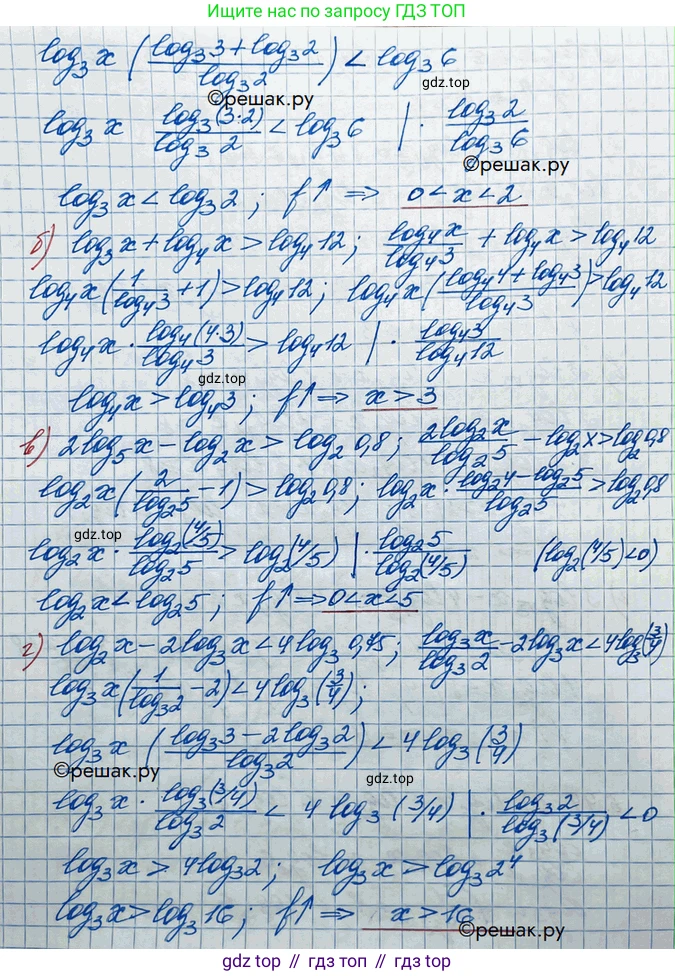 Ищите нас по запросу ГДЗ ТОП
log₃ x ((log₃ 3 + log₃ 2)/log₃ 2) < log₃ 6
gdz.top
©решак.ру
log₃ x log₃(3·2)/log₃ 2 < log₃ 6 | · log₃ 2/log₃ 6
©решак.ру
log₃ x < log₃ 2 ; f↑ ⇒ 0 < x < 2
б) log₃ x + log₄ x > log₄ 12 ; log₄ x/log₄ 3 + log₄ x > log₄ 12
log₄ x (1/log₄ 3 + 1) > log₄ 12 ; log₄ x ((log₄ 4 + log₄ 3)/log₄ 3) > log₄ 12
log₄ x · log₄(4·3)/log₄ 3 > log₄ 12 | · log₄ 3/log₄ 12
gdz.top
log₄ x > log₄ 3 ; f↑ ⇒ x > 3
в) 2 log₅ x − log₂ x > log₂ 0,8 ; 2 log₂ x/log₂ 5 − log₂ x > log₂ 0,8
log₂ x (2/log₂ 5 − 1) > log₂ 0,8 ; log₂ x · (log₂ 4 − log₂ 5)/log₂ 5 > log₂ 0,8
gdz.top
log₂ x · log₂(4/5)/log₂ 5 > log₂(4/5) | · log₂ 5/log₂(4/5) (log₂(4/5) < 0)
log₂ x < log₂ 5 ; f↑ ⇒ 0 < x < 5
г) log₂ x − 2 log₃ x < 4 log₃ 0,75 ; log₃ x/log₃ 2 − 2 log₃ x < 4 log₃(3/4)
log₃ x (1/log₃ 2 − 2) < 4 log₃(3/4) ;
log₃ x ((log₃ 3 − 2 log₃ 2)/log₃ 2) < 4 log₃(3/4)
©решак.ру
gdz.top
log₃ x · log₃(3/4)/log₃ 2 < 4 log₃(3/4) | · log₃ 2/log₃(3/4) < 0
log₃ x > 4 log₃ 2 ; log₃ x > log₃ 2⁴
log₃ x > log₃ 16 ; f↑ ⇒ x > 16
©решак.ру
gdz.top // гдз.топ // гдз.top